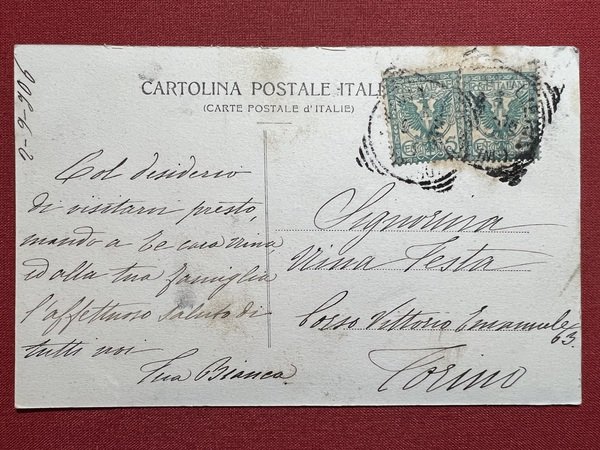 2-6-906
CARTOLINA POSTALE ITAL
(CARTE POSTALE d'ITALIE)
Col desiderio
di visitarvi presto,
mando a te cara Nina
ed alla tua famiglia
l'affettuoso saluto di
tutti noi
Tua Bianca.
Signorina
Nina Testa
Corso Vittorio Emanuele
63.
Torino